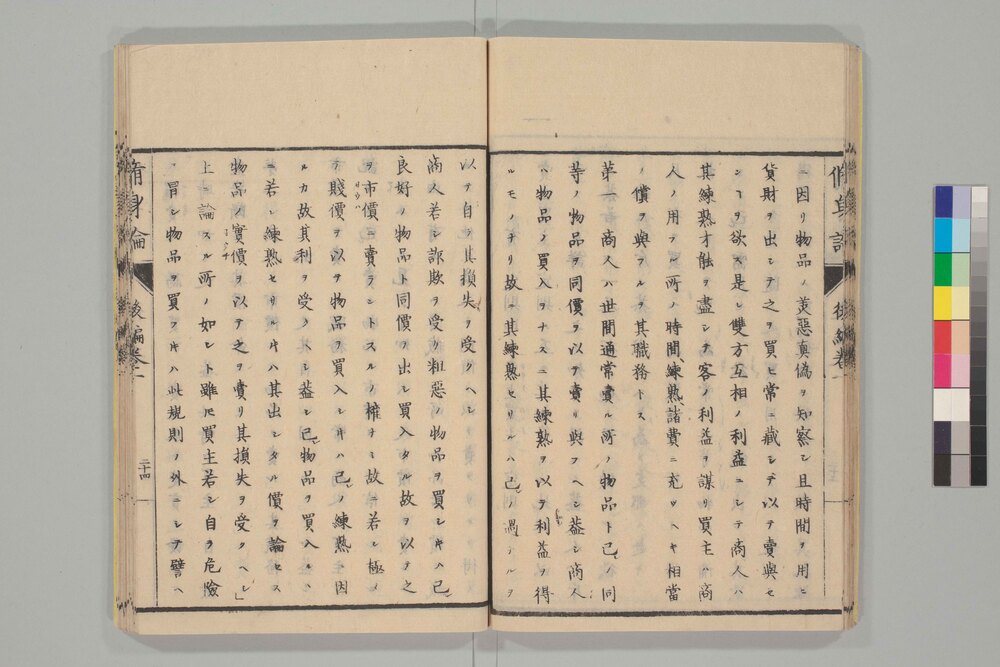 ニ因リ物品ノ美惡真偽ヲ知察シ且時間ヲ用ヒ
貨財ヲ出シテ之ヲ買ヒ常ニ藏シテ以テ賣與セ
ンヿヲ欲ス是レ雙方互相ノ利益ニシテ商人ハ
其練熟才能ヲ盡シテ客ノ利益ヲ謀リ買主ハ商
人ノ用フル所ノ時間、練熟、諸費ニ充ツヘキ相當
ノ償ヲ與フルヲ其職務トス
第一商人ハ世間通常賣ル所ノ物品ト己レノ同
等ノ物品ヲ同價ヲ以テ賣リ與フヘシ蓋シ商人
ハ物品ノ買入ヲナスニ其練熟ヲ以テ利益ヲ得
ルモノナリ故ニ其練熟セサルハ己レノ過チナルヲ
以テ自ラ其損失ヲ受クヘシ
商人若シ詐欺ヲ受ケ粗惡ノ物品ヲ買シキハ己レ
良好ノ物品ト同價ヲ出シ買入タル故ヲ以テ之
ヲ市價ニ賣ラントスルノ權ナシ故ニ若シ極メ
テ賤價ヲ以テ物品ヲ買入シキハ己レノ練熟ニ因
ルカ故其利ヲ受クヘシ蓋シ己レ物品ヲ買入ルヽ
ニ若シ練熟セサルキハ其出シタル價ヲ論セス
物品ノ實價ヲ以テ之ヲ賣リ其損失ヲ受クヘシ」
上ニ論スル所ノ如シト雖𪜈買主若シ自ラ危險
ヲ冒シ物品ヲ買フキハ此規則ノ外ニシテ譬ヘ
脩身論
後編卷一
二十四